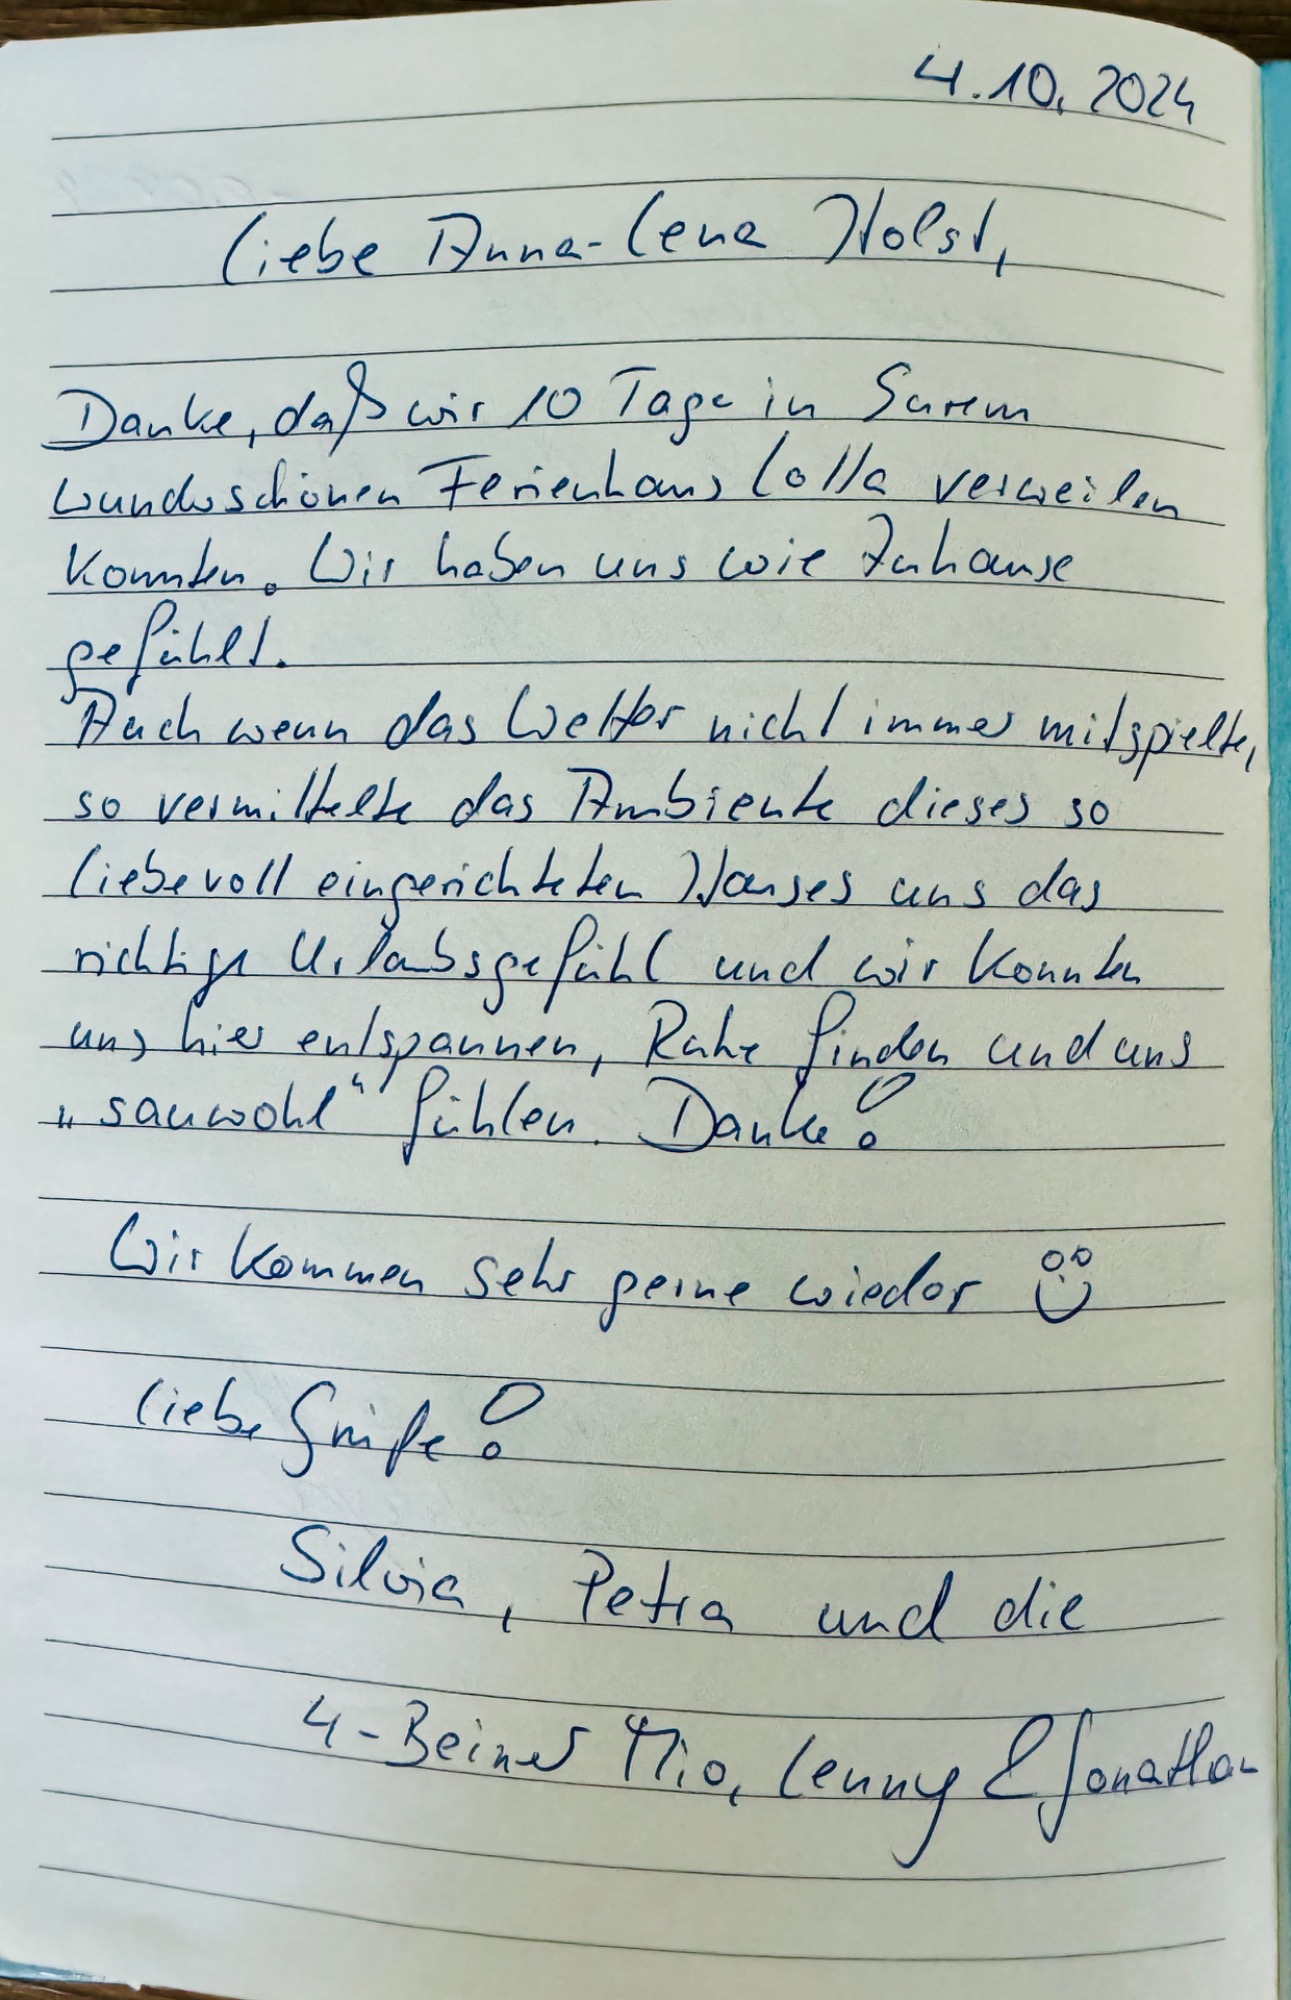 4.10.2024
Liebe Anna-Lena Holst,
Danke, daß wir 10 Tage in Eurem
wunderschönen Ferienhaus Lolla verweilen
konnten. Wir haben uns wie Zuhause
gefühlt.
Auch wenn das Wetter nicht immer mitspielte,
so vermittelte das Ambiente dieses so
liebevoll eingerichteten Hauses uns das
richtige Urlaubsgefühl und wir konnten
uns hier entspannen, Ruhe finden und uns
„sauwohl“ fühlen. Danke!
Wir kommen sehr gerne wieder
Liebe Grüße!
Silvia, Petra und die
4-Beiner Mio, Lenny & Jonathan